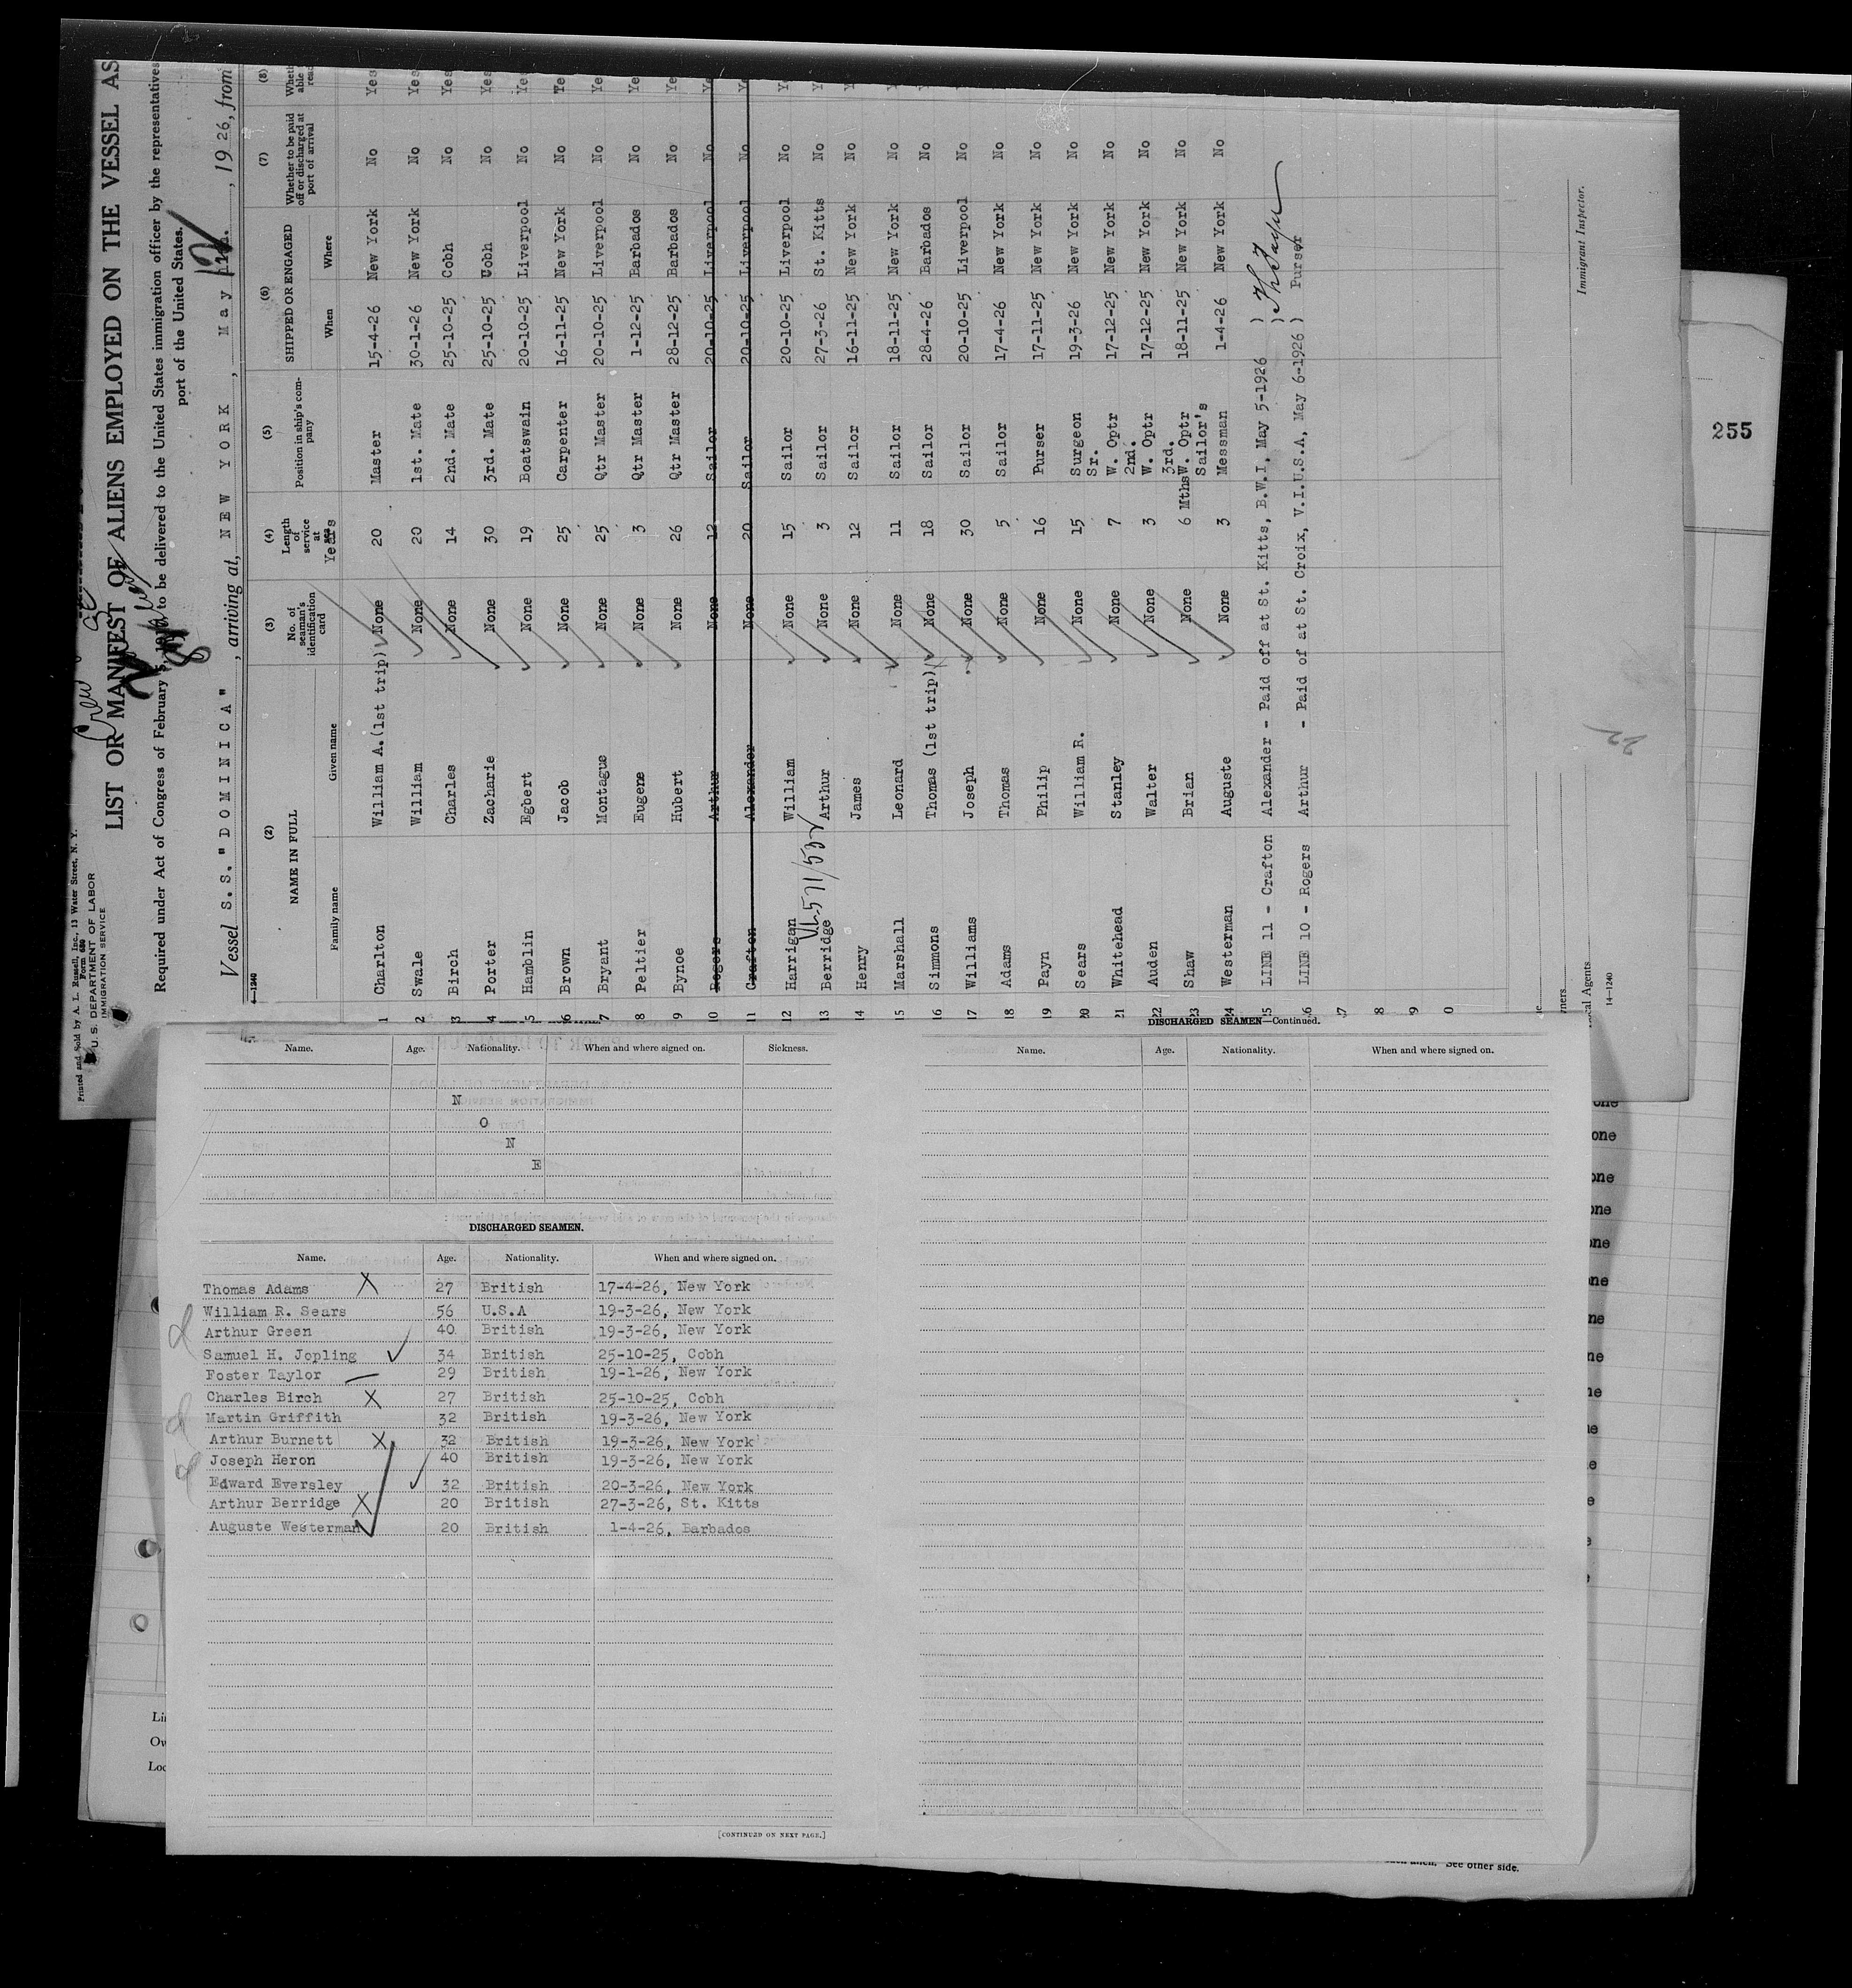 Printed and Sold by A. L. Russell, Inc., 13 Water Street, N. Y.
Form 680
U. S. DEPARTMENT OF LABOR
IMMIGRATION SERVICE
Crew
LIST OR MANIFEST OF ALIENS EMPLOYED ON THE VESSEL AS
Required under Act of Congress of February to be delivered to the United States immigration officer by the representatives
port of the United States.
Vessel S.S. "DOMINICA" , arriving at, NEW YORK , May 12 , 1926, from
4—1240
(2) (3) (4) (5) (6) (7) (8)
NAME IN FULL No. of seaman's identification card Length of service at sea Years Position in ship's company SHIPPED OR ENGAGED Whether to be paid off or discharged at port of arrival
Family name Given name When Where
1 Charlton William A.(1st trip) None 20 Master 15-4-26 New York No Yes
2 Swale William None 20 1st. Mate 30-1-26 New York No Yes
3 Birch Charles None 14 2nd. Mate 25-10-25 Cobh No Yes
4 Porter Zacharie None 30 3rd. Mate 25-10-25 Cobh No Yes
5 Hamblin Egbert None 19 Boatswain 20-10-25 Liverpool No Yes
6 Brown Jacob None 25 Carpenter 16-11-25 New York No Te
7 Bryant Montague None 25 Qtr Master 20-10-25 Liverpool No Ye
8 Peltier Eugene None 3 Qtr Master 1-12-25 Barbados No Ye
9 Bynoe Hubert None 26 Qtr Master 28-12-25 Barbados No Ye
10 Rogers Arthur None 12 Sailor 20-10-25 Liverpool No Ye
11 Crafton Alexander None 20 Sailor 20-10-25 Liverpool No Ye
12 Harrigan William None 15 Sailor 20-10-25 Liverpool No Ye
VL571/532
13 Berridge Arthur None 3 Sailor 27-3-26 St. Kitts No Y
14 Henry James None 12 Sailor 16-11-25 New York No Y
15 Marshall Leonard None 11 Sailor 18-11-25 New York No
16 Simmons Thomas (1st trip) None 18 Sailor 28-4-26 Barbados No
17 Williams Joseph None 30 Sailor 20-10-25 Liverpool No
18 Adams Thomas None 5 Sailor 17-4-26 New York No
19 Payn Philip None 16 Purser 17-11-25 New York No
20 Sears William R. None 15 Surgeon 19-3-26 New York No
21 Whitehead Stanley None 7 Sr. W. Optr 17-12-25 New York No
22 Auden Walter None 3 2nd. W. Optr 17-12-25 New York No
23 Shaw Brian None 6 Mths 3rd. W. Optr 18-11-25 New York No
24 Westerman Auguste None 3 Sailor's Messman 1-4-26 New York No
5 LINE 11 - Crafton Alexander - Paid off at St. Kitts, B.W.I, May 5-1926 )
6 LINE 10 - Rogers Arthur - Paid of at St. Croix, V.I.U.S.A, May 6-1926 ) Purser
7
8
9
0
Local Agents
14—1240
Immigrant Inspector.
22
255
Name. Age. Nationality. When and where signed on. Sickness.
N
O
N
E
DISCHARGED SEAMEN.
Name. Age. Nationality. When and where signed on.
Thomas Adams X 27 British 17-4-26, New York
William R. Sears 56 U.S.A 19-3-26, New York
Arthur Green 40 British 19-3-26, New York
Samuel H. Jopling 34 British 25-10-25, Cobh
Foster Taylor 29 British 19-1-26, New York
Charles Birch X 27 British 25-10-25, Cobh
Martin Griffith 32 British 19-3-26, New York
Arthur Burnett X 32 British 19-3-26, New York
Joseph Heron 40 British 19-3-26, New York
Edward Eversley 32 British 20-3-26, New York
Arthur Berridge X 20 British 27-3-26, St. Kitts
Auguste Westerman 20 British 1-4-26, Barbados
[CONTINUED ON NEXT PAGE.]
DISCHARGED SEAMEN—Continued.
Name. Age. Nationality. When and where signed on.
See other side.